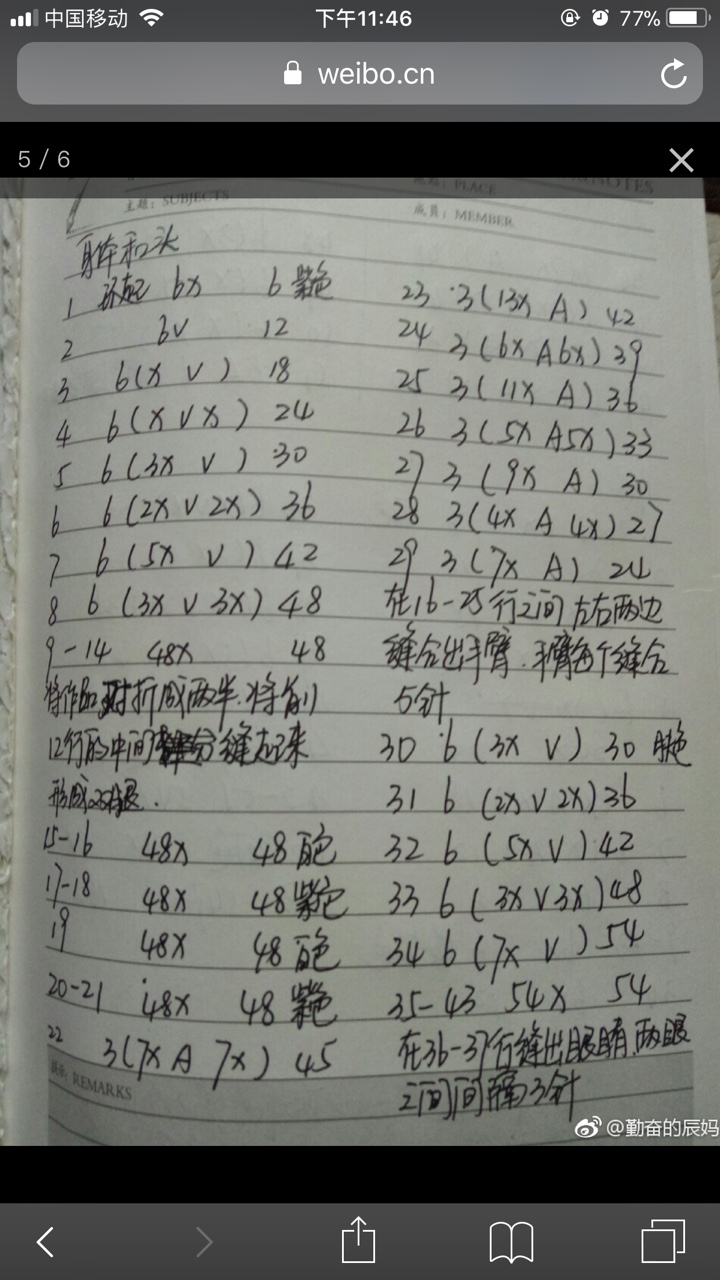 中国移动 下午11:46 77%
weibo.cn
5 / 6
主题：SUBJECTS
PLACE
NOTES
成员：MEMBER
身体和头
1 环起 6x 6 紫色
2 6v 12
3 6(x v) 18
4 6(x v x) 24
5 6(3x v) 30
6 6(2x v 2x) 36
7 6(5x v) 42
8 6(3x v 3x) 48
9-14 48x 48
将作品对折成两半.将前
12行的中间部分缝起来
形成
15-16 48x 48 白色
17-18 48x 48 紫色
19 48x 48 白色
20-21 48x 48 紫色
22 3(7x A 7x) 45
REMARKS
23 3(13x A) 42
24 3(6x A 6x) 39
25 3(11x A) 36
26 3(5x A 5x) 33
27 3(9x A) 30
28 3(4x A 4x) 27
29 3(7x A) 24
在16-25行之间左右两边
缝合出手臂.手臂每个缝合
5针
30 6(3x v) 30 肤色
31 6(2x v 2x) 36
32 6(5x v) 42
33 6(3x v 3x) 48
34 6(7x v) 54
35-43 54x 54
在36-37行缝出眼睛.两眼
之间间隔3针
@勤奋的辰妈